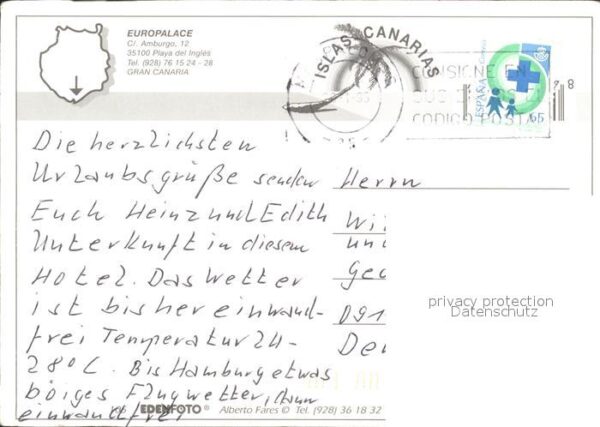 EUROPALACE
C/. Amburgo, 12
35100 Playa del Inglés
Tel. (928) 76 15 24 - 28
GRAN CANARIA
ISLAS CANARIAS
CONSIGNE EN
SUS
CODIGO POSTAL
ESPAÑA
Correos
65
98
Die herzlichsten
Urlaubsgrüße senden
Euch Heinz und Edith
Unterkunft in diesem
Hotel. Das Wetter
ist bisher einwand-
frei Temperatur 24-
28°C. Bis Hamburg etwas
böiges Flugwetter, dann
einwandfrei
Herrn
Wi
und
Geo
091
Deu
privacy protection
Datenschutz
EDENFOTO® Alberto Fares © Tel. (928) 36 18 32